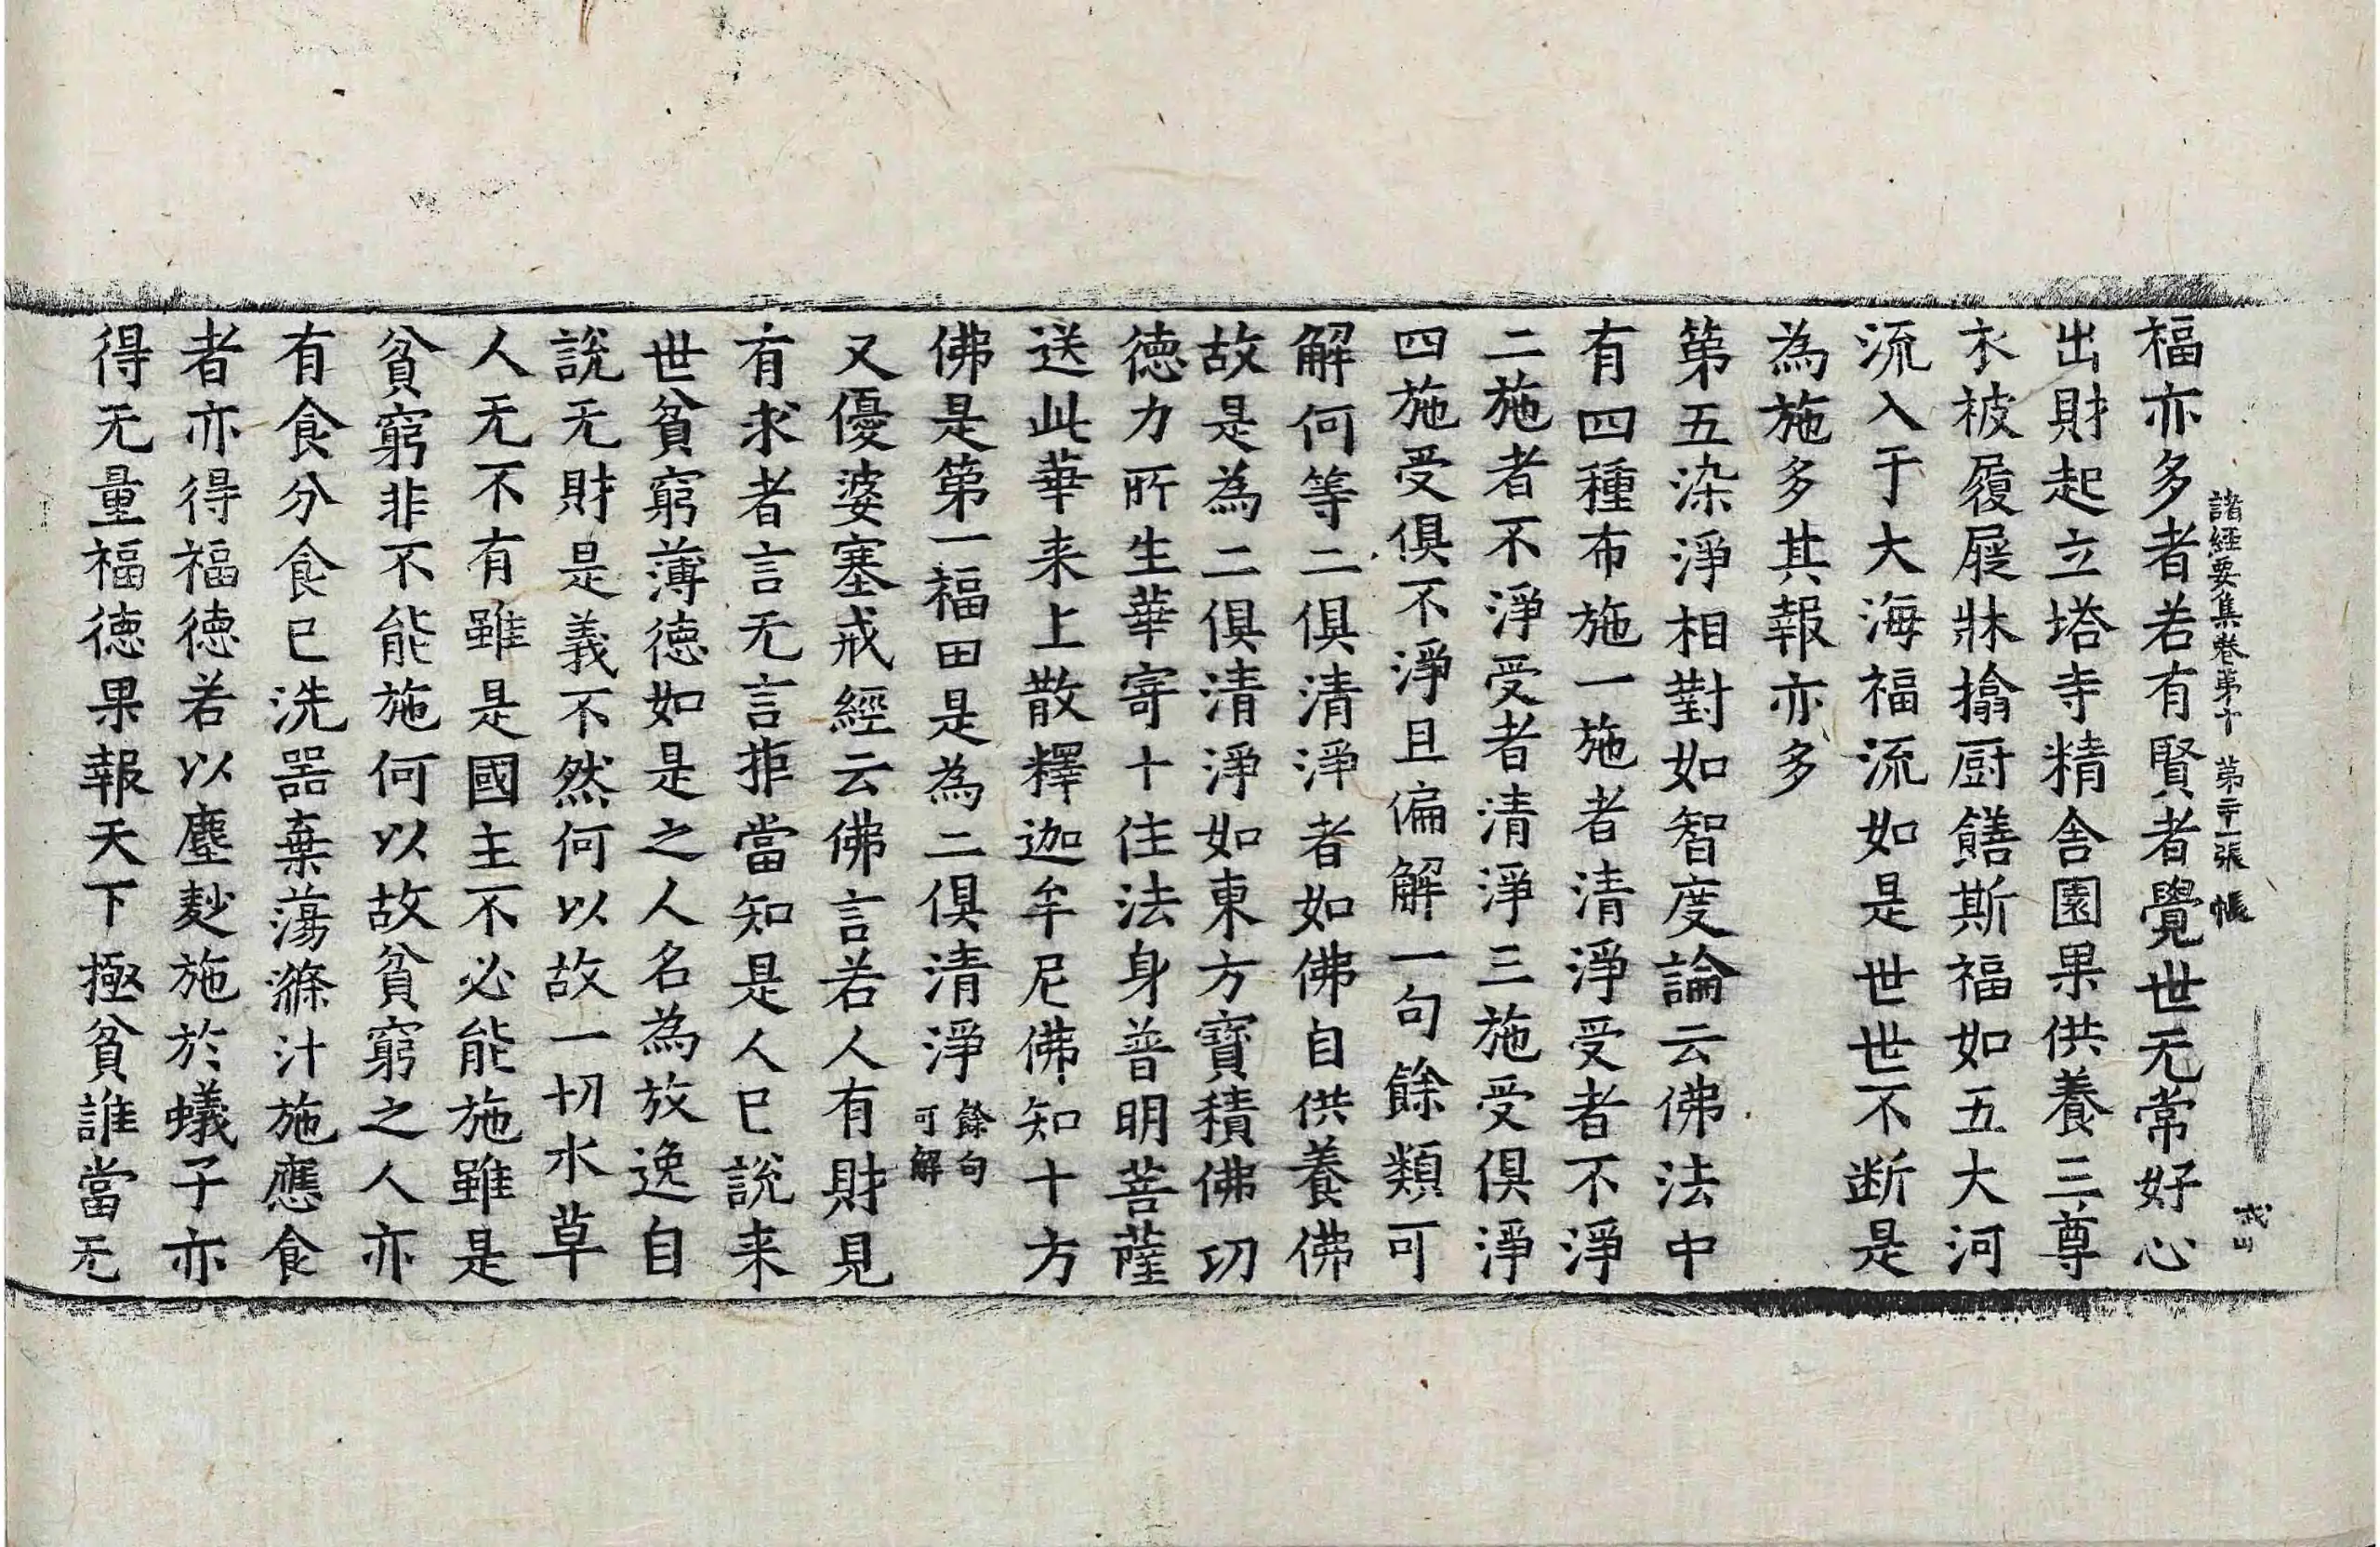 諸經要集卷第十 第二十一張 帳
福亦多者若有賢者覺世无常好心
出財起立塔寺精舍園果供養三尊
衣被履屣牀㩉厨饍斯福如五大河
流入于大海福流如是世世不断是
為施多其報亦多
第五染淨相對如智度論云佛法中
有四種布施一施者清淨受者不淨
二施者不淨受者清淨三施受俱淨
四施受俱不淨且偏解一句餘類可
解何等二俱清淨者如佛自供養佛
故是為二俱清淨如東方寶積佛功
德力所生華寄十住法身普明菩薩
送此華来上散釋迦牟尼佛知十方
佛是第一福田是為二俱清淨餘句可解
又優婆塞戒經云佛言若人有財見
有求者言无言拒當知是人已說来
世貧窮薄德如是之人名為放逸自
說无財是義不然何以故一切水草
人无不有雖是國主不必能施雖是
貧窮非不能施何以故貧窮之人亦
有食分食已洗器棄蕩滌汁施應食
者亦得福德若以塵麨施於蟻子亦
得无量福德果報天下極貧誰當无